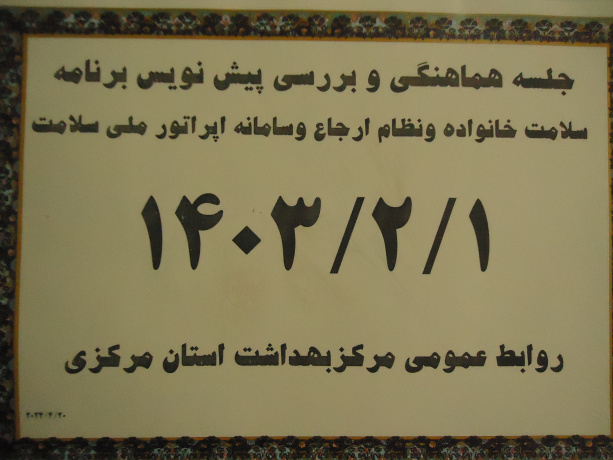 جلسه هماهنگی و بررسی پیش نویس برنامه
سلامت خانواده ونظام ارجاع وسامانه اپراتور ملی سلامت
۱۴۰۳/۲/۱
روابط عمومی مرکزبهداشت استان مرکزی
۲۰۲۴/۴/۲۰